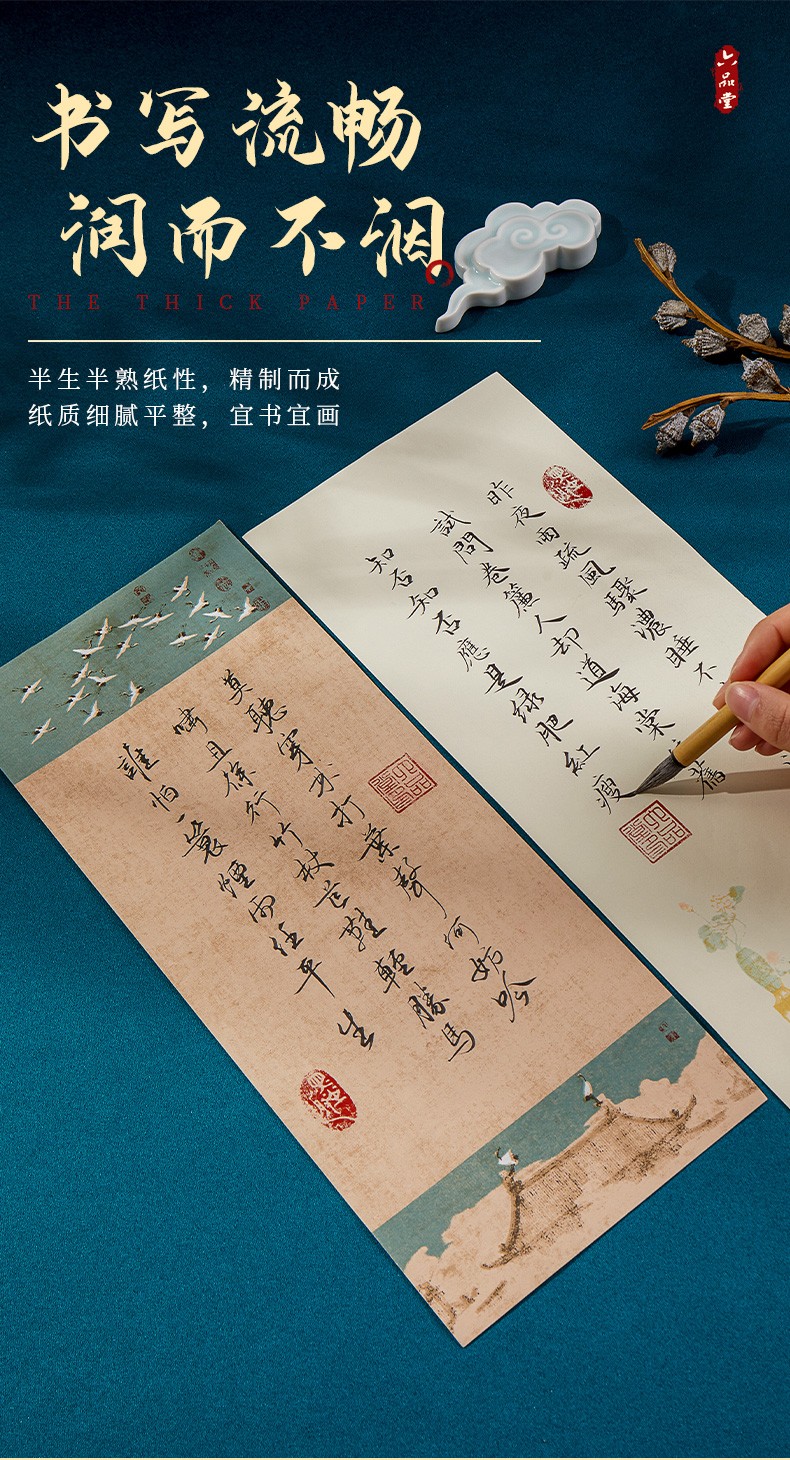 六品堂
书写流畅
润而不洇
THE THICK PAPER
半生半熟纸性，精制而成
纸质细腻平整，宜书宜画
昨夜雨疏風驟濃睡不
試問卷簾人却道海棠
舊
知否知否應是绿肥紅瘦
莫聽穿林打葉聲何妨吟
嘯且徐行竹杖芒鞋輕勝馬
誰怕一蓑煙雨任平生